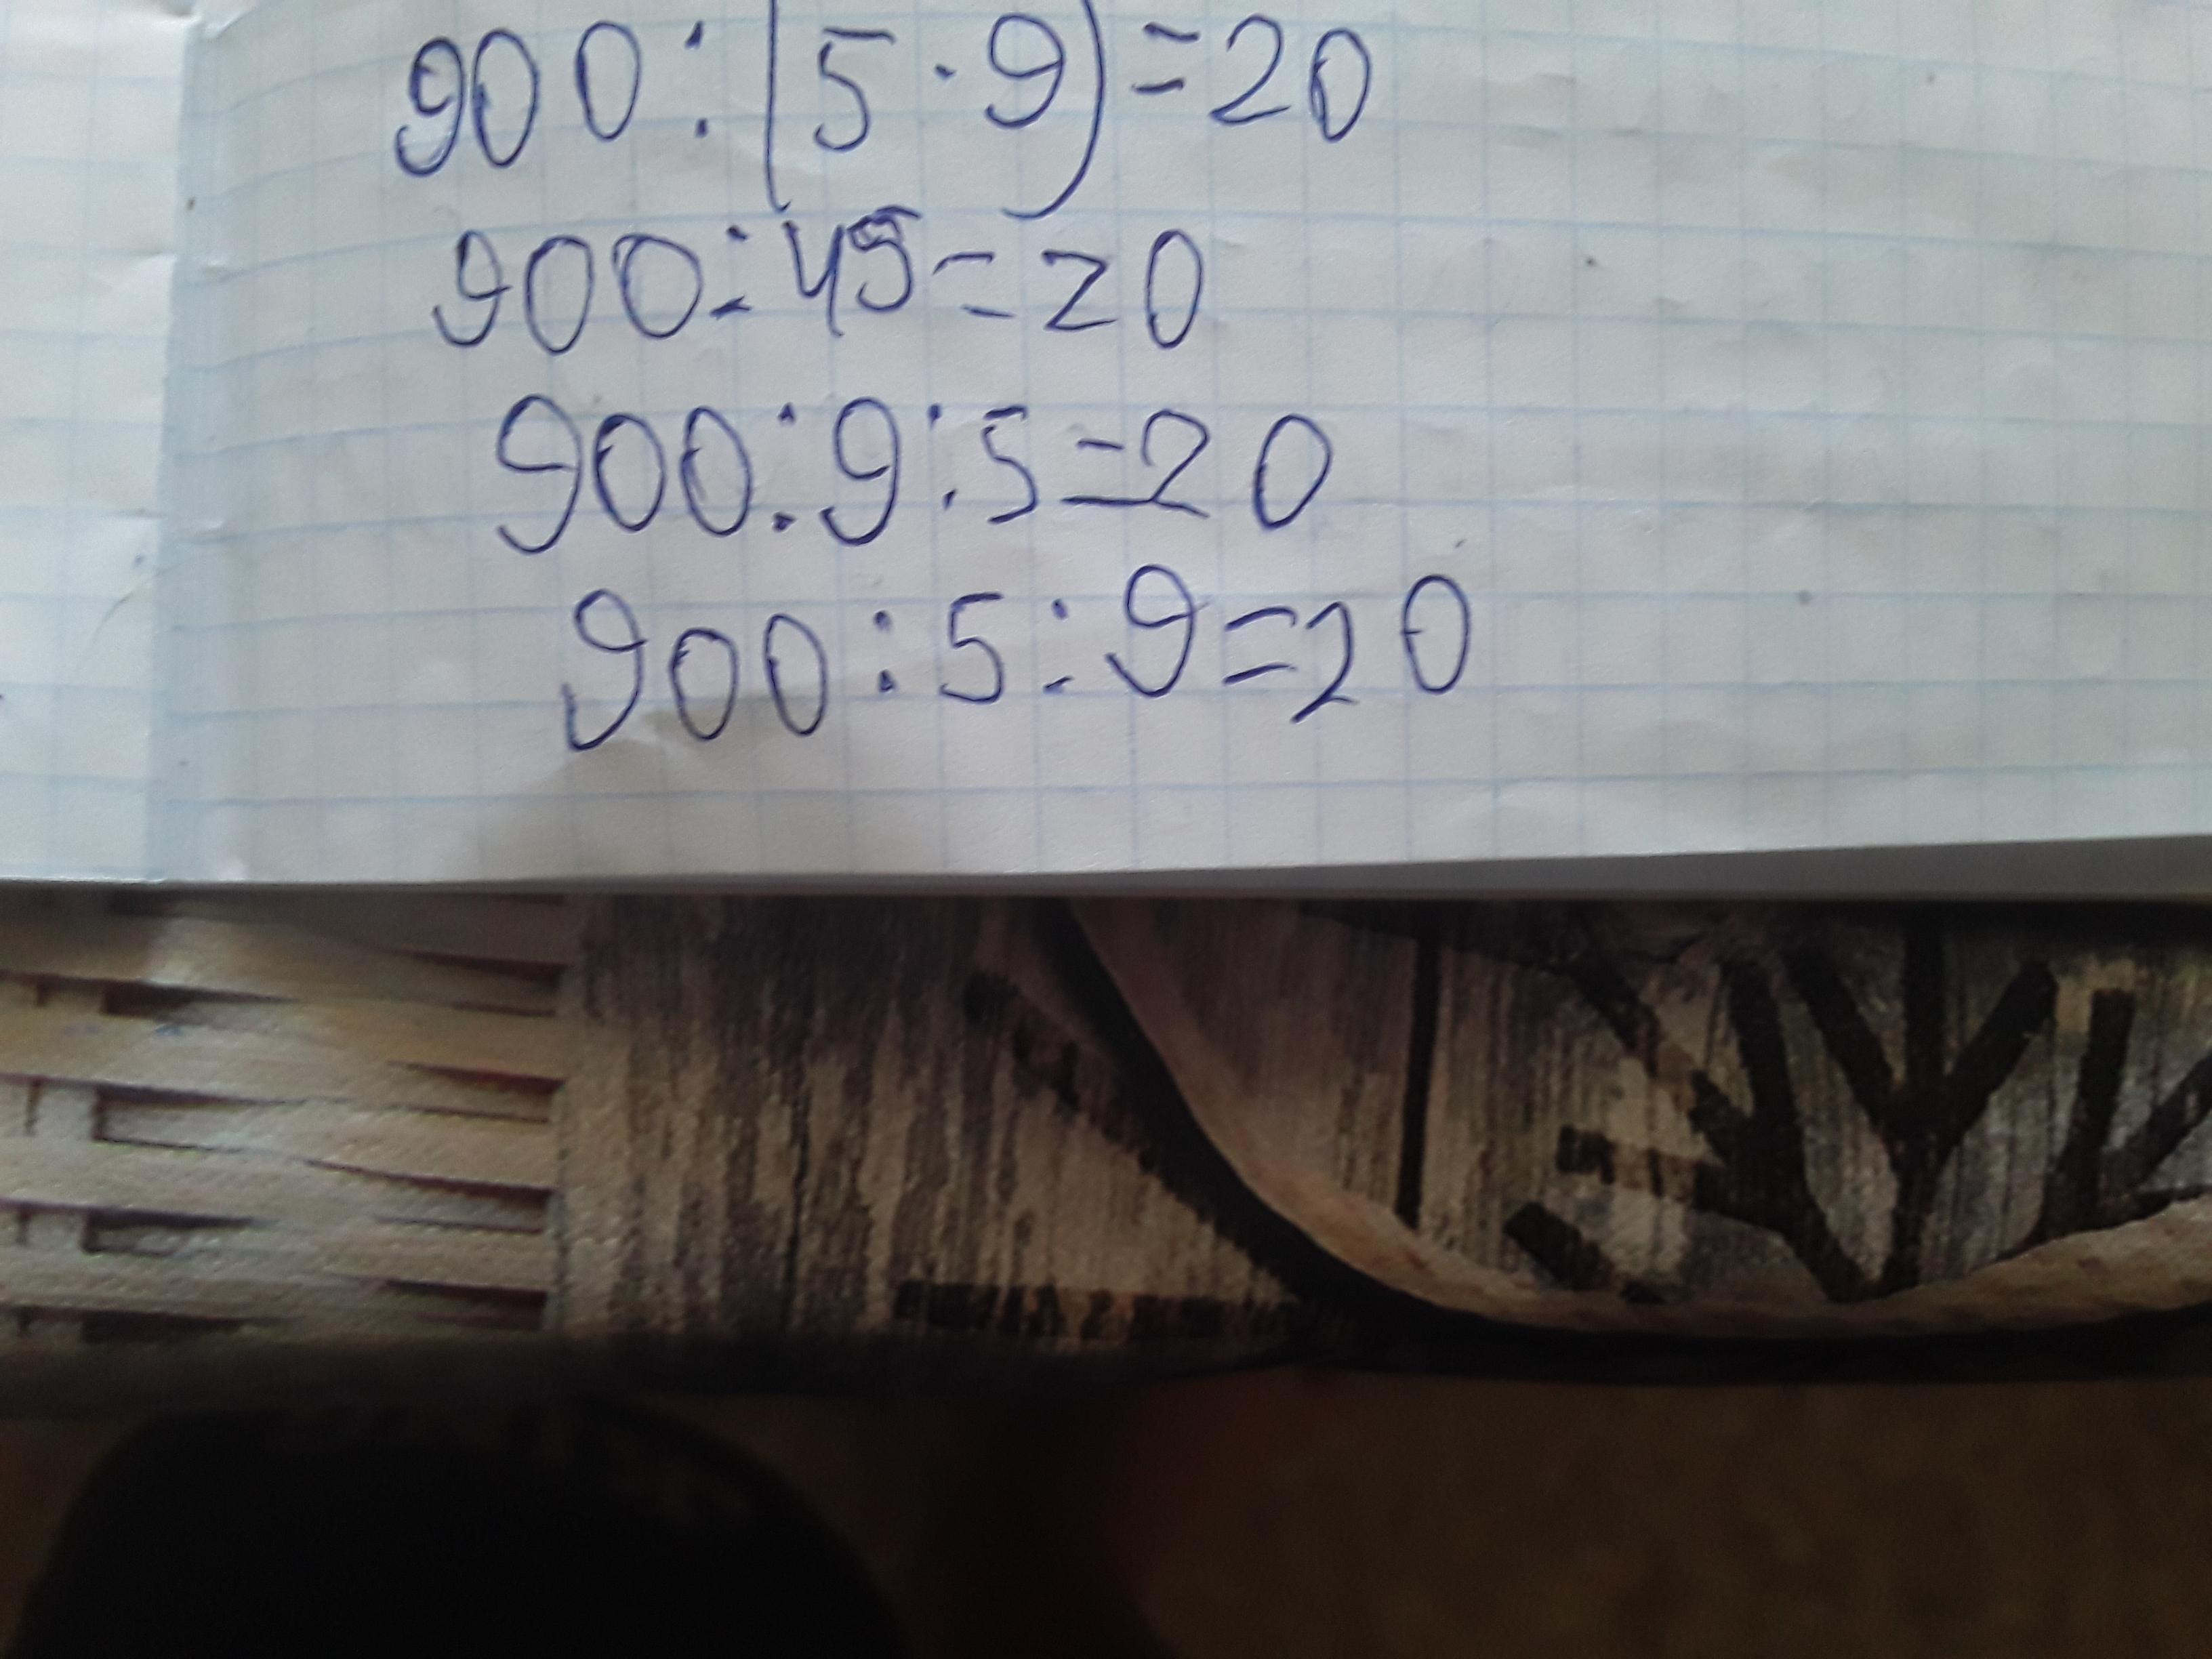 900:(5·9)=20
900:45=20
900:9:5=20
900:5:9=20